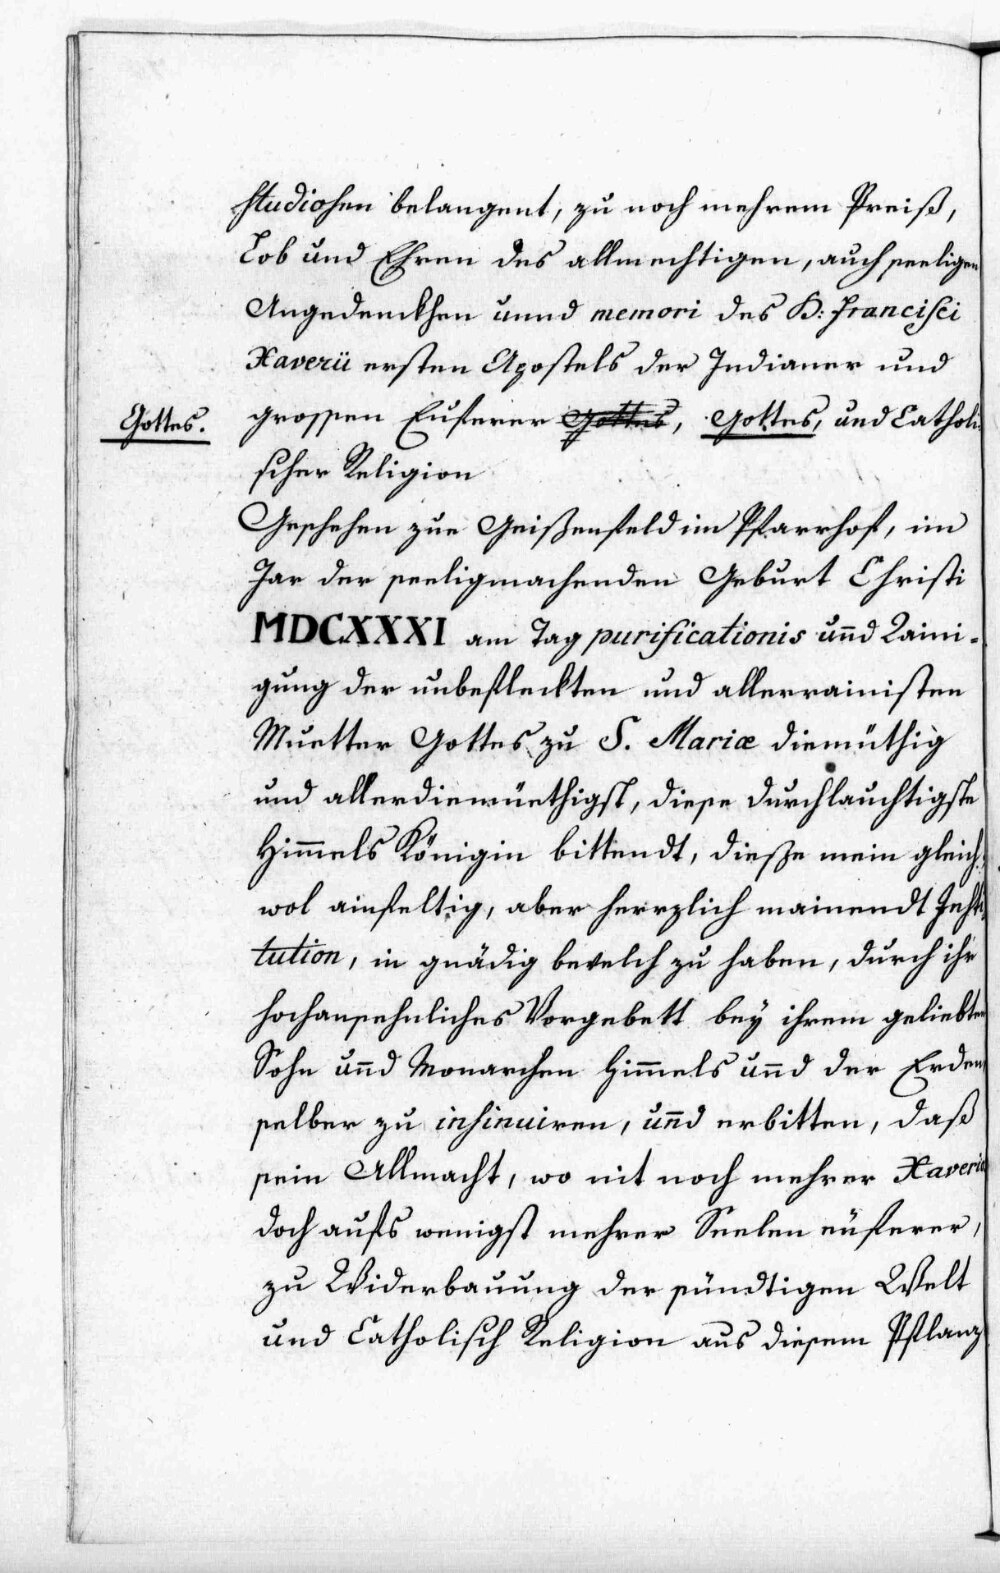 studiosen belangent, zu noch mehrem Preiß,
Lob und Ehren des allmechtigen, auch seeligen
Angedenckhen unnd memori des H: Francisci
Xaverii ersten Apostels der Indianer und
Gottes.
grossen Euferer Gottes, Gottes, und Catholi
scher Religion
Geschehen zue Geißenfeld im Pfarrhof, im
Jar der seeligmachenden Geburt Christi
MDCXXXI am Tag purificationis un̄d Raini-
gung der unbefleckten und allerrainisten
Muetter Gottes zu S. Mariæ diemüthig
und allerdiemüethigst, diese durchlauchtigste
Him̄els Königin bittendt, dieße mein gleich
wol ainfeltig, aber herrzlich mainendt Insti
tution, in gnädig bevelch zu haben, durch ihr
hochansehnliches Vorgebett bey ihrem geliebten
Sohn un̄d Monarchen Him̄els un̄d der Erden
selber zu insinuiren, un̄d erbitten, daß
sein Allmacht, wo nit noch mehrer Xaverios
doch aufs wenigst mehrer Seelen eüferer,
zu Widerbauung der sündtigen Welt
und Catholisch Religion aus diesem Pflanz